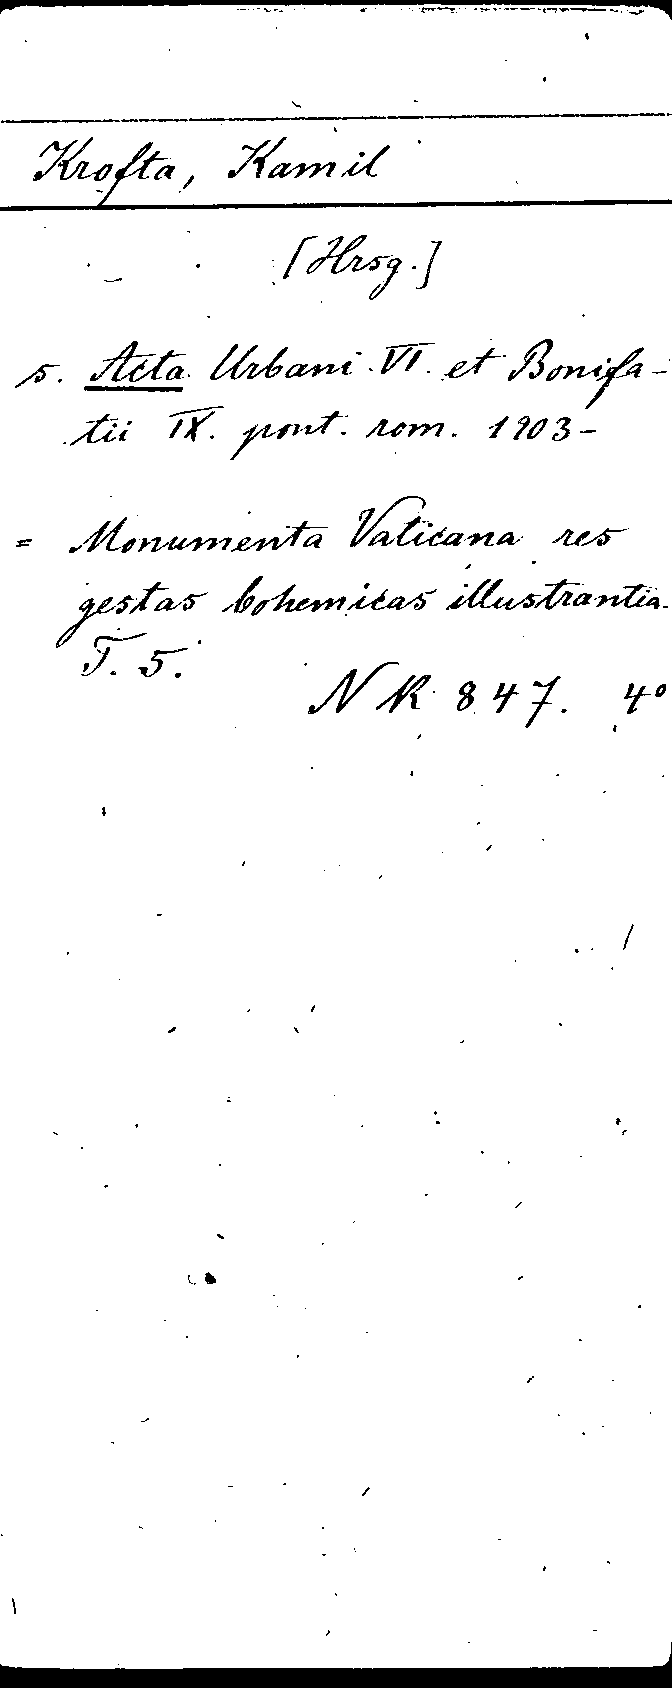 Krofta, Kamil
[Hrsg.]
s. Acta Urbani VI. et Bonifa-
tii IX. pont. rom. 1903-
= Monumenta Vaticana res
gestas bohemicas illustrantia.
T. 5.
NR 847. 4°